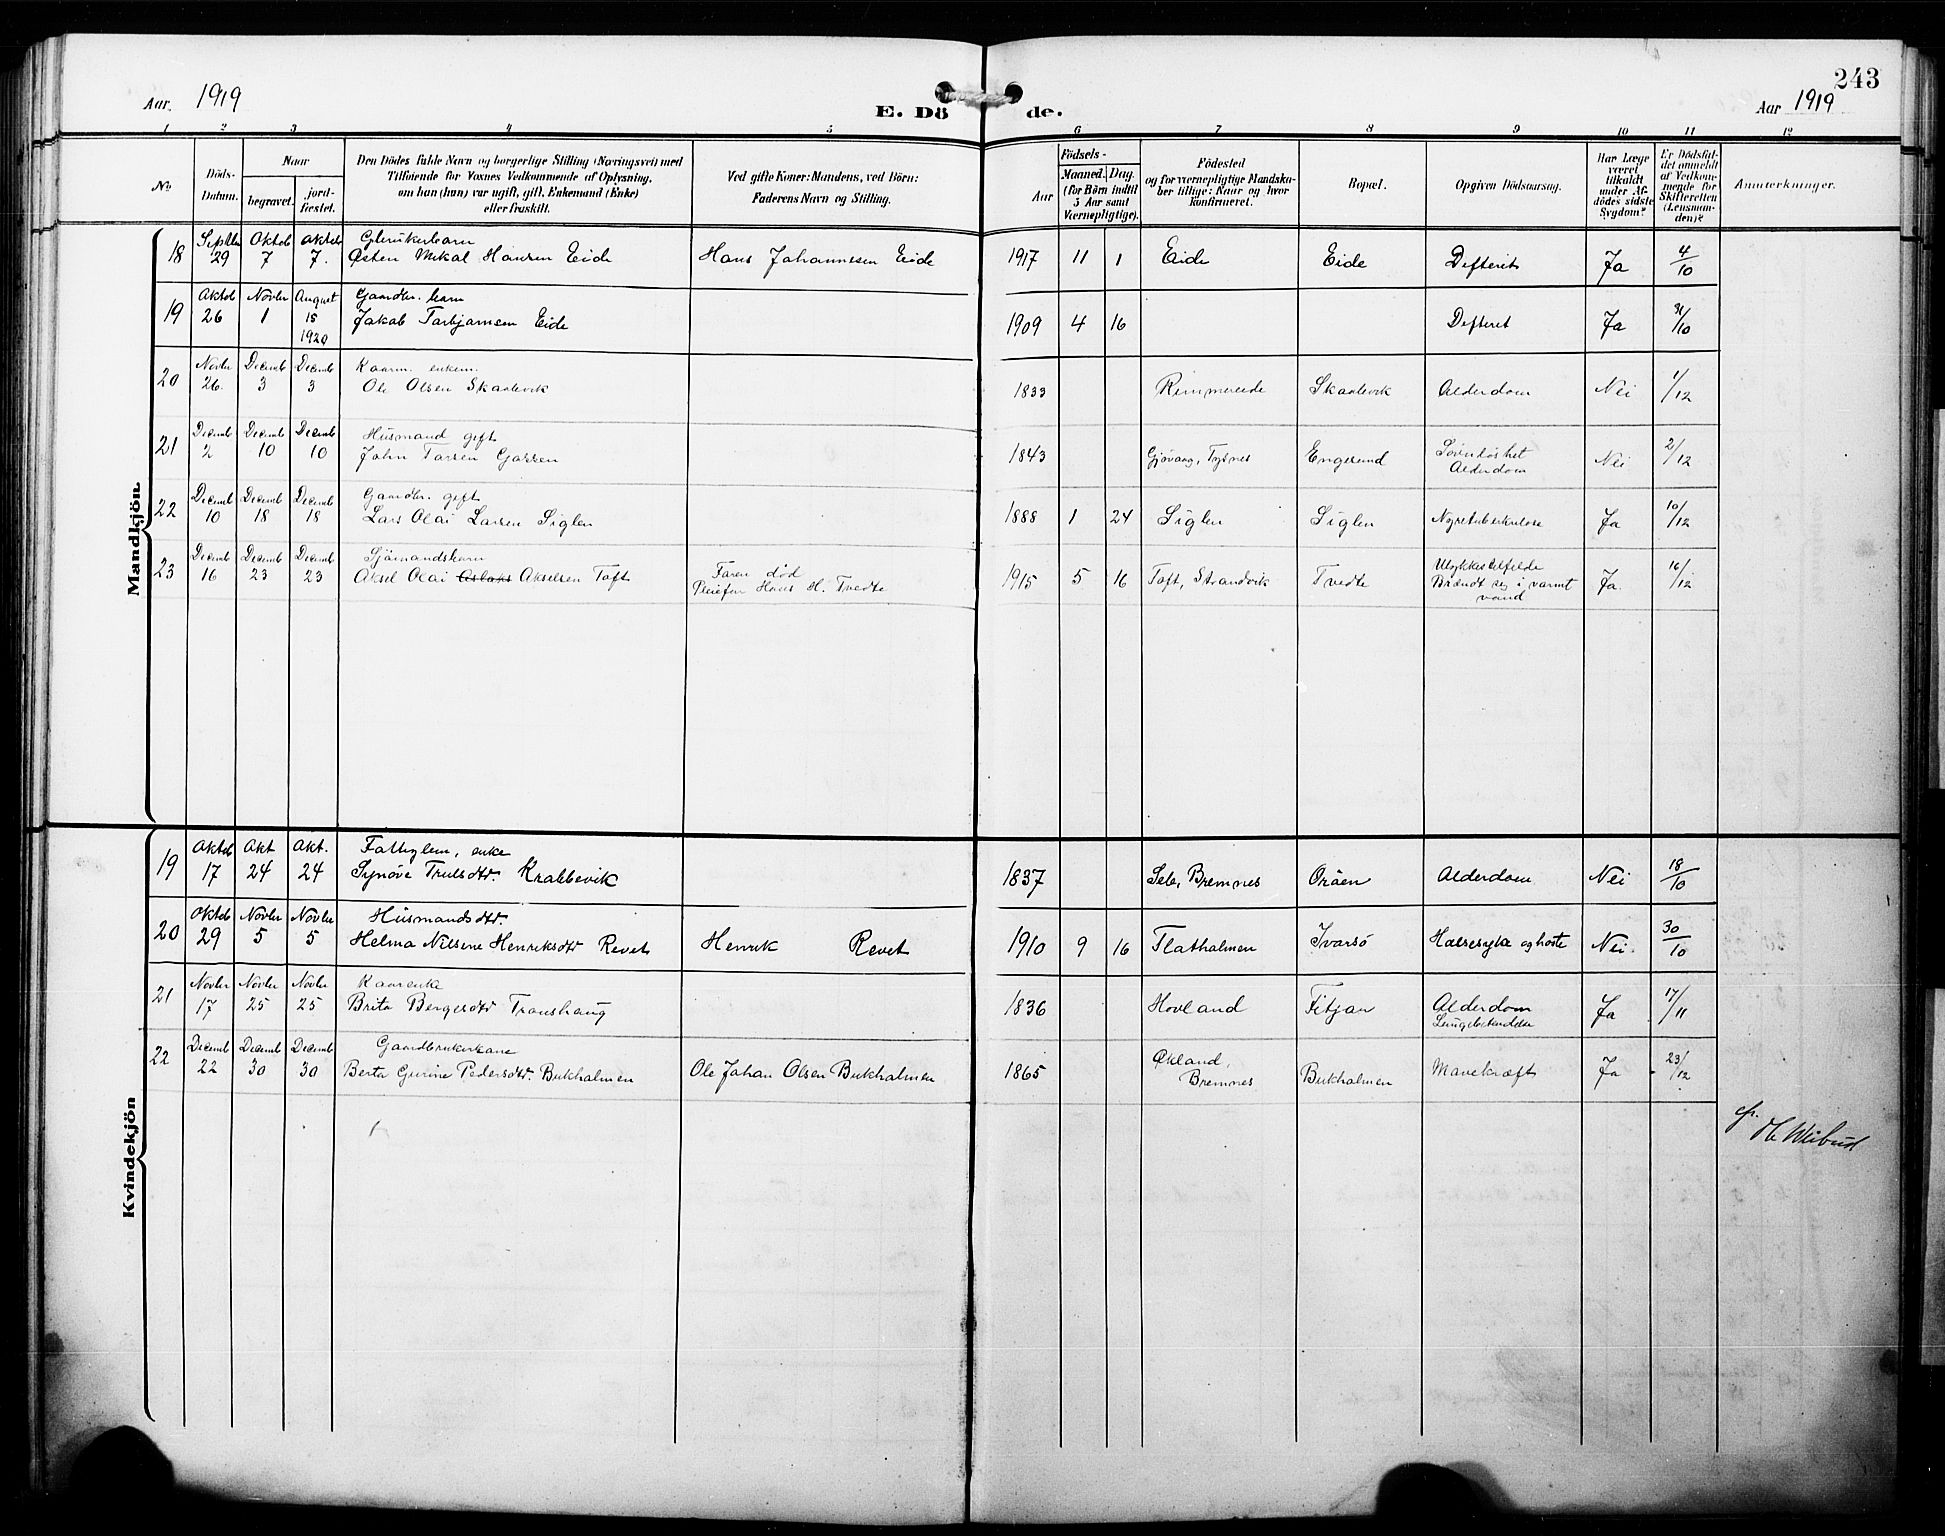 243
Aar. 1919
E. Dö de.
Aar 1919
1 2 3 4 5 6 7 8 9 10 11 12
No.
Döds-Datum.
Naar
begravet.
jord-fæstet.
Den Dödes fulde Navn og borgerlige Stilling (Næringsvei) med
Tilföiende for Voxnes Vedkommende af Oplysning,
om han (hun) var ugift, gift, Enkemand (Enke)
eller fraskilt.
Ved gifte Koner: Mandens, ved Börn:
Faderens Navn og Stilling.
Aar
Födsels-
Maaned. Dag.
(for Börn indtil
5 Aar samt
Værnepligtige).
Födested
og for værnepligtige Mandska-
ber tillige: Naar og hvor
konfirmeret.
Bopæl.
Opgiven Dödsaarsag.
Har Læge
været
tilkaldt
under Af-
dödes sidste
Sygdom?
Er Dödsfal-
det anmeldt
af Vedkom-
mende for
Skifteretten
(Lensman-
den)?
Anmærkninger.
Mandkjön.
18 Septbr 29 Oktob 7 Oktob 7. Gbrukerbarn
Østen Mikal Hansen Eide Hans Johannessen Eide 1917 11 1 Eide Eide Defterit Ja 4/10
19 Oktob 26 Novbr 1 August 15 1920 Gaardbr. barn
Jakob Torbjørnsen Eide 1909 4 16 Defterit Ja 31/10
20 Novbr 26. Decemb 3 Decemb 3 Kaarm. enkem.
Ole Olsen Skaalevik 1833 Rimmereide Skaalevik Alderdom Nei 1/12
21 Decemb 2 Decemb 10 Decemb 10 Husmand gift
John Larsen 1843 Gjøvaag, Tysnes Engesund Søvnløshet
Alderdom Nei 2/12
22 Decemb 10 Decemb 18 Decemb 18 Gaardbr. gift
Lars Olai Larsen Siglen 1888 1 24 Siglen Siglen Nyretuberkulose Ja 10/12
23 Decemb 16 Decemb 23 Decemb 23 Sjømandsbarn
Aksel Olai Aslaks Akselsen Toft Faren død
Pleiefar Hans H. Tvedte 1915 5 16 Toft, Strandvik Tvedte Ulykkestilfelde
Brændt seg i varmt
vand Ja 16/12
Kvindekjön
19 Oktob 17 Okt 24 Okt. 24 Fattiglem, enke
Synøve Trulsdtr. Krabbevik 1837 Sele, Bremnes Oraen Alderdom Nei 18/10
20 Oktob 29 Novbr 5 Novbr 5 Husmandsdtr.
Helma Nilsine Henriksdtr Revet Henrik Revet 1910 9 16 Flatholmen Ivarsø Halsesyke og hoste Nei. 30/10
21 Novbr 17 Novbr 25 Novbr 25 Kaarenke
Brita Bergesdtr Transhaug 1836 Hovland Fitjar Alderdom
Lungebetendelse Ja 17/11
22 Decemb 22 Decemb 30 Decemb 30 Gaardbrukerkone
Berta Gurine Pedersdtr. Bukholmen Ole Johan Olsen Bukholmen 1865 Økland,
Bremnes Bukholmen Mavekræft Ja 23/12